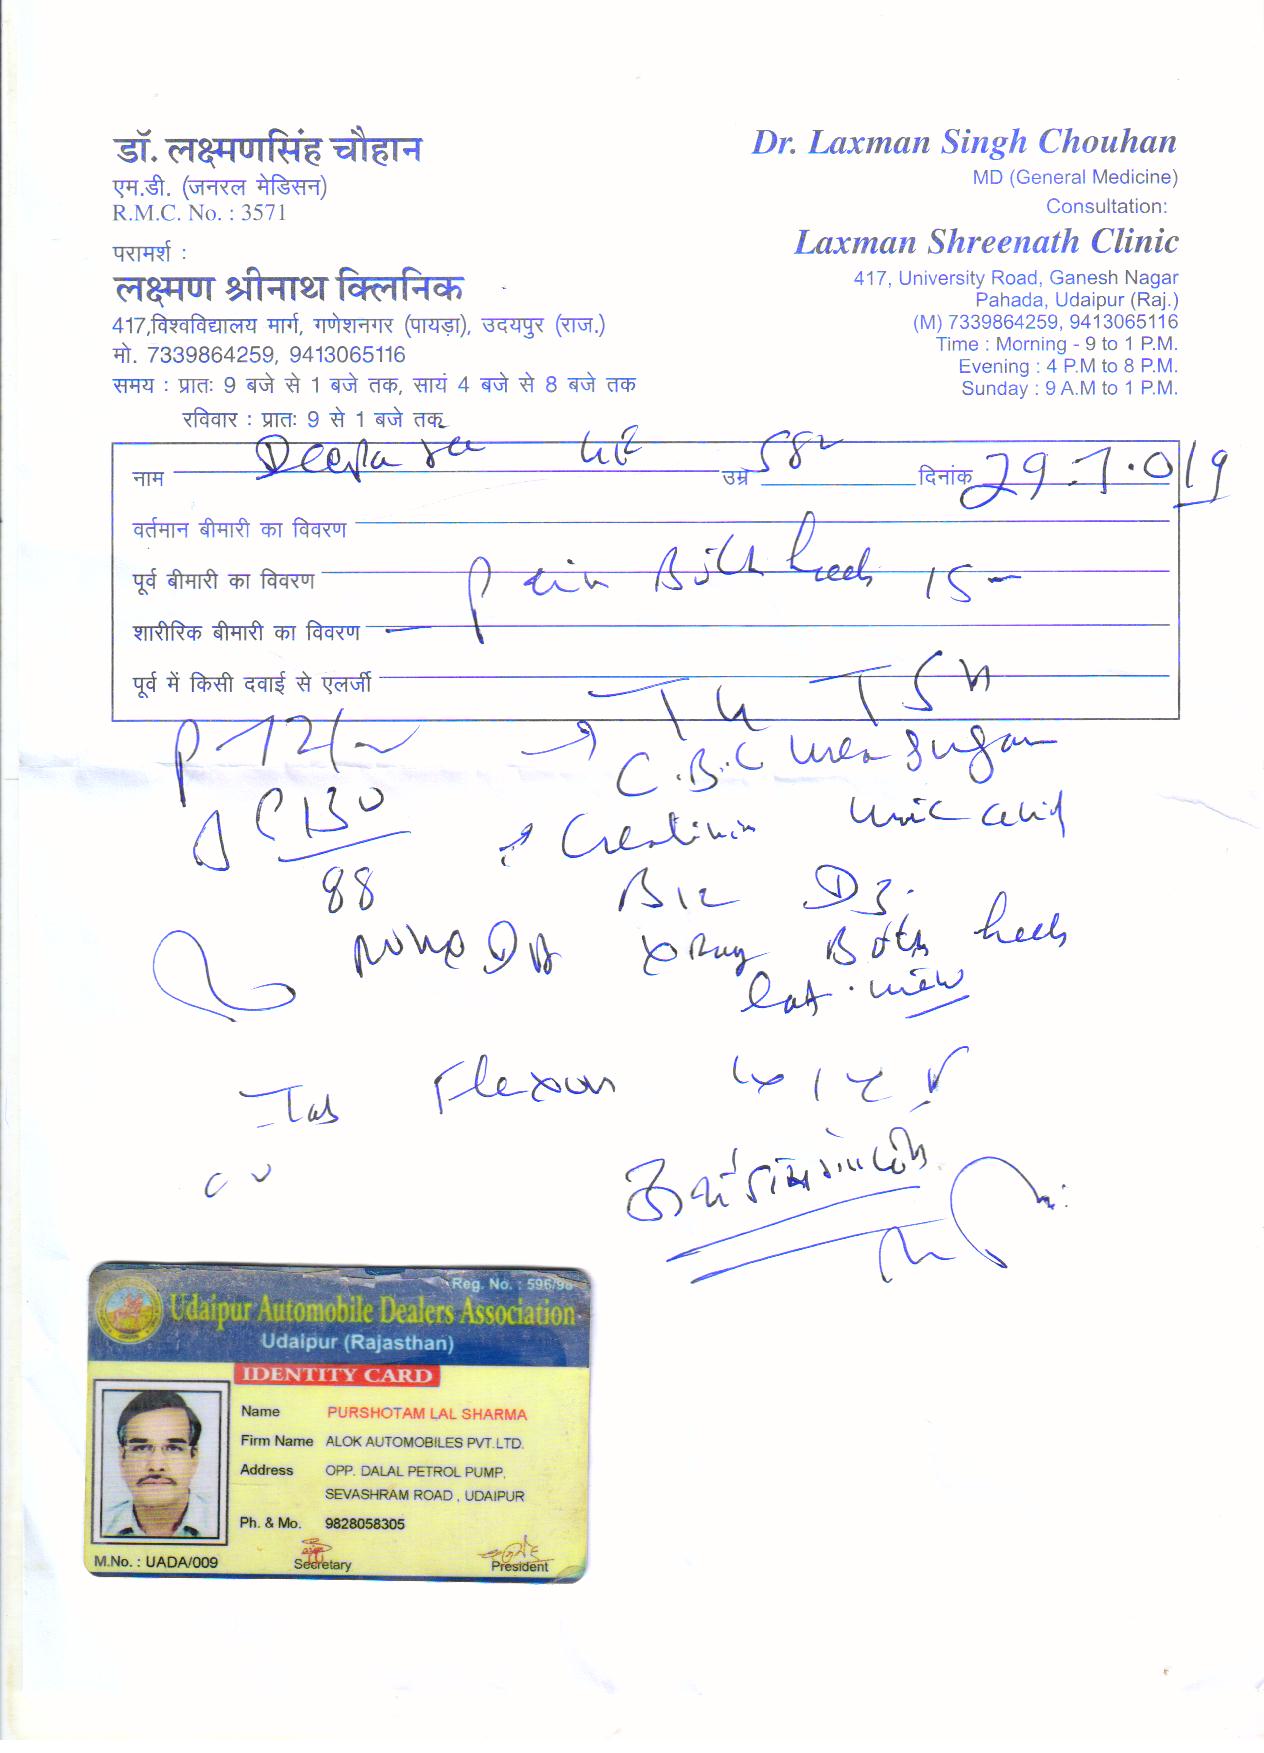 डॉ. लक्ष्मणसिंह चौहान
एम.डी. (जनरल मेडिसन)
R.M.C. No. : 3571
परामर्श :
लक्ष्मण श्रीनाथ क्लिनिक
417,विश्वविद्यालय मार्ग, गणेशनगर (पायड़ा), उदयपुर (राज.)
मो. 7339864259, 9413065116
समय : प्रातः 9 बजे से 1 बजे तक, सायं 4 बजे से 8 बजे तक
रविवार : प्रातः 9 से 1 बजे तक
Dr. Laxman Singh Chouhan
MD (General Medicine)
Consultation:
Laxman Shreenath Clinic
417, University Road, Ganesh Nagar
Pahada, Udaipur (Raj.)
(M) 7339864259, 9413065116
Time : Morning - 9 to 1 P.M.
Evening : 4 P.M to 8 P.M.
Sunday : 9 A.M to 1 P.M.
नाम उम्र दिनांक
वर्तमान बीमारी का विवरण
पूर्व बीमारी का विवरण Pain Both heels 15
शारीरिक बीमारी का विवरण
पूर्व में किसी दवाई से एलर्जी
TSH
C.B.C Urea Sugar
130
Creatinin Uric acid
88
B12 D3.
Xray Both heels
lat. view
Tab Flexon
Reg. No. : 596/98
Udaipur Automobile Dealers Association
Udaipur (Rajasthan)
IDENTITY CARD
Name PURSHOTAM LAL SHARMA
Firm Name ALOK AUTOMOBILES PVT.LTD.
Address OPP. DALAL PETROL PUMP,
SEVASHRAM ROAD , UDAIPUR
Ph. & Mo. 9828058305
M.No. : UADA/009 Secretary President